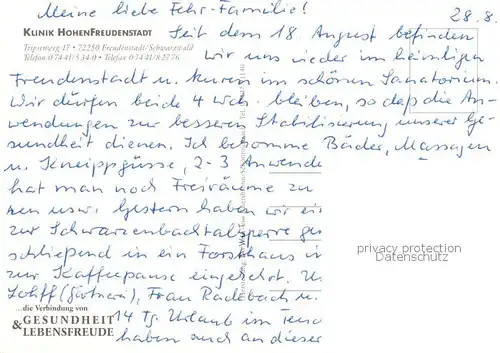 Meine liebe Fehr-Familie! 28.8.
KLINIK HOHENFREUDENSTADT
Tripsenweg 17 • 72250 Freudenstadt/Schwarzwald
Telefon 07441/534-0 • Telefax 07441/82776
Seit dem 18. August befinden
wir uns wieder im heimeligen
Freudenstadt u. kuren im schönen Sanatorium.
Wir dürfen beide 4 Wch. bleiben, so daß die An-
wendungen zur besseren Stabilisierung unserer Ge-
sundheit dienen. Ich bekomme Bäder, Massagen
u. Kneippgüsse, 2-3 Anwende
hat man noch Freiräume zu
usw. Gestern haben wir ei
zur Schwarzenbachtalsperre ge
schließend in ein Forsthaus
zur Kaffeepause eingekehrt. U
Frau Radebach u.
14 Tg. Urlaub im
haben auch an dieser
...die Verbindung von
GESUNDHEIT
& LEBENSFREUDE
privacy protection
Datenschutz